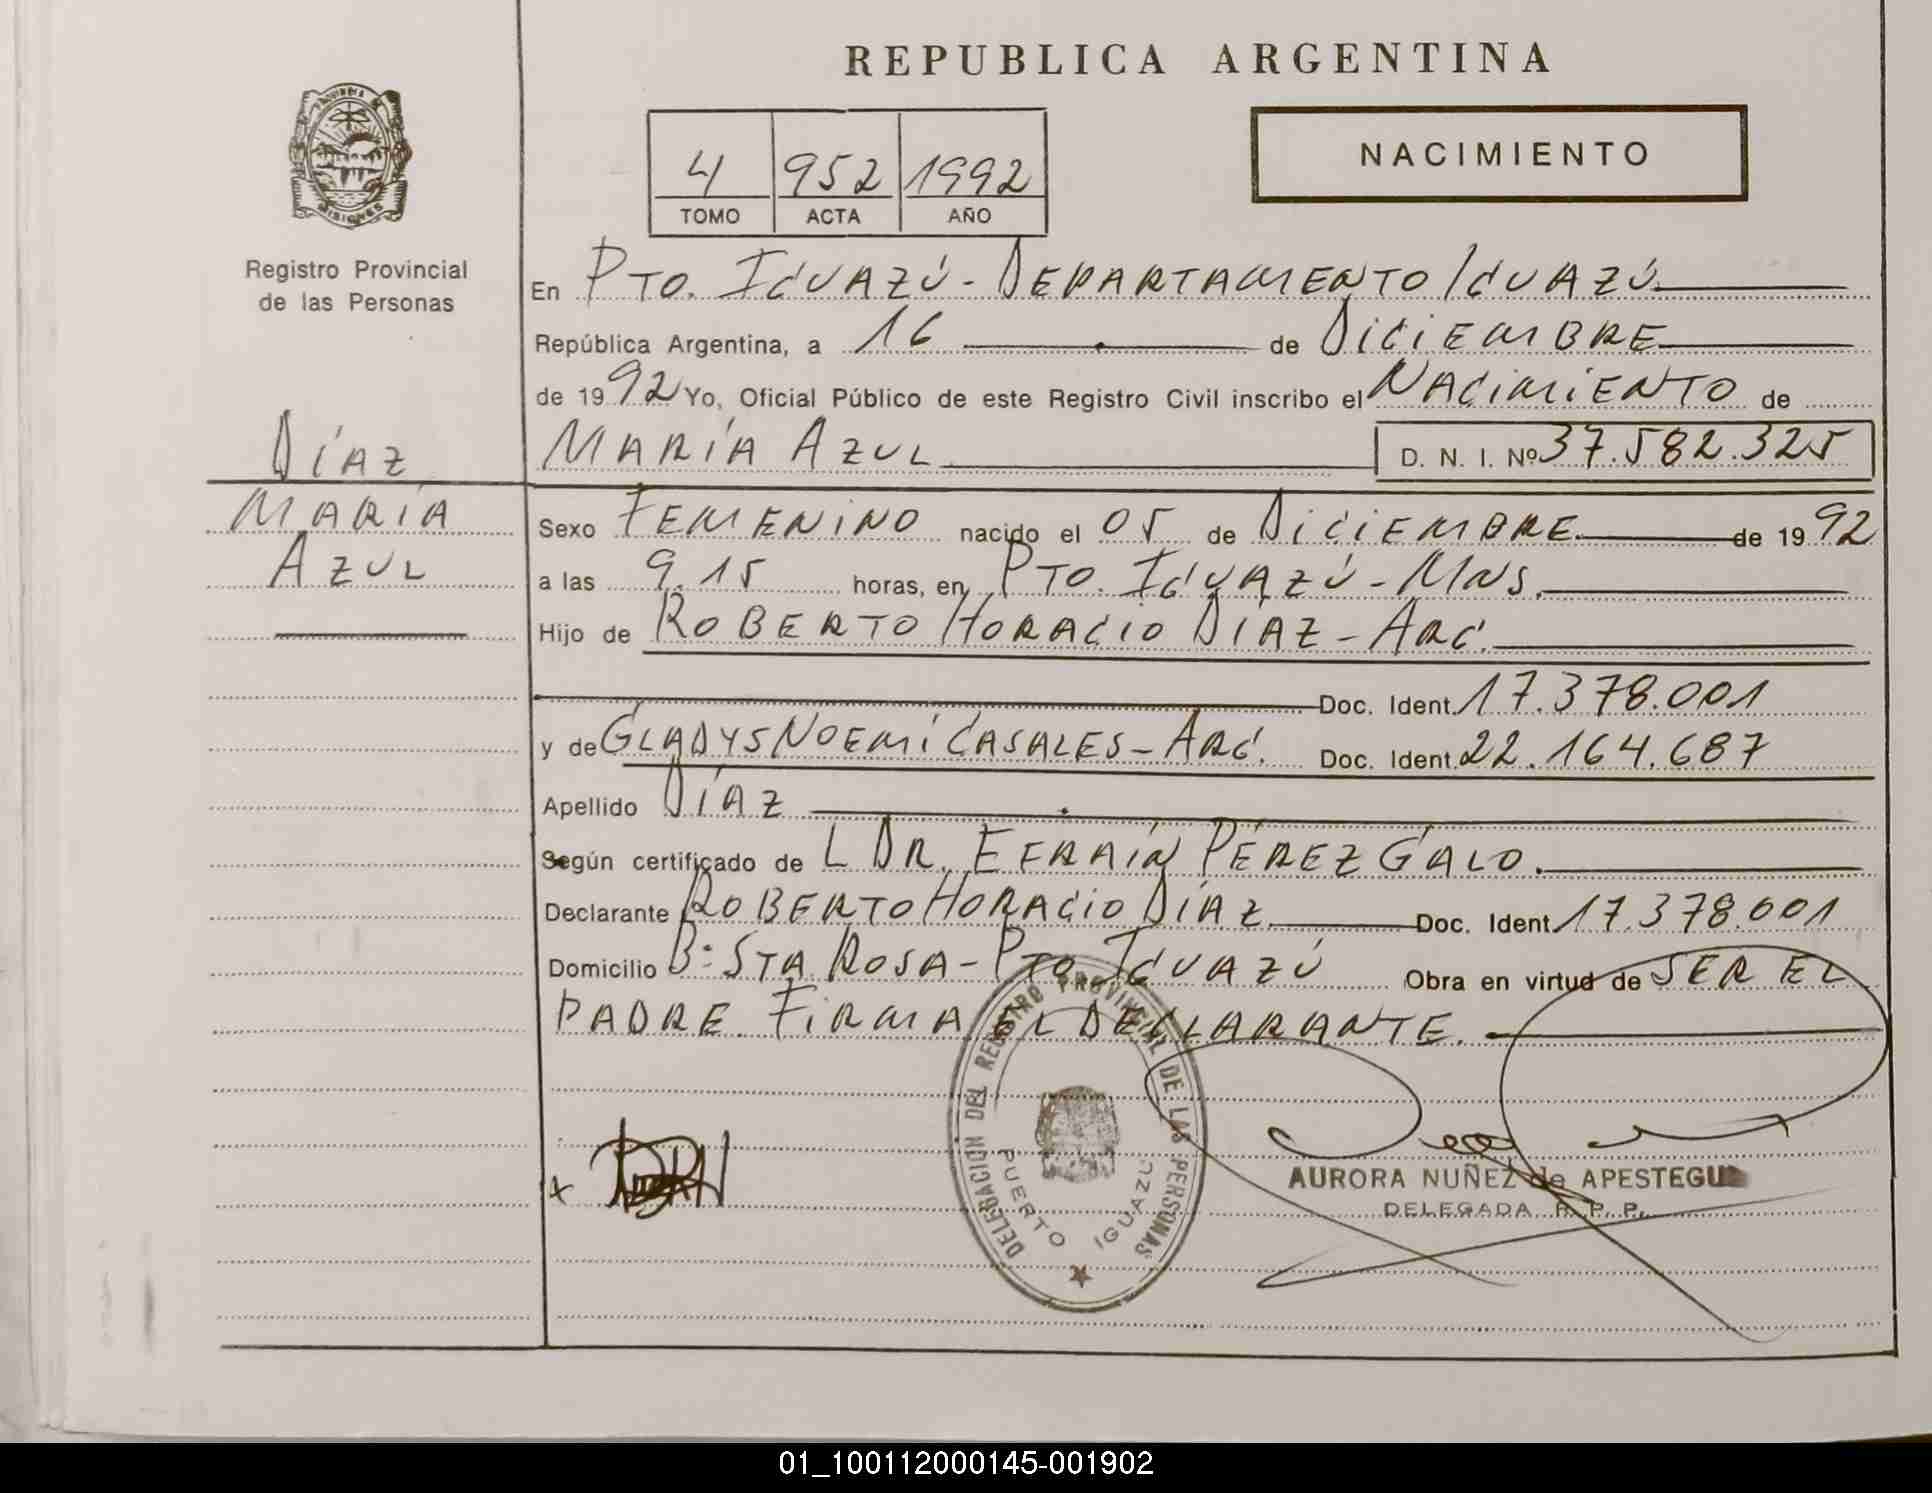 REPUBLICA ARGENTINA
PROVINCIA DE
MISIONES
4 952 1992
TOMO ACTA AÑO
NACIMIENTO
Registro Provincial
de las Personas
En PTO. IGUAZÚ - DEPARTAMENTO IGUAZÚ
República Argentina, a 16 de DICIEMBRE
de 1992 Yo, Oficial Público de este Registro Civil inscribo el NACIMIENTO de
MARÍA AZUL D. N. I. Nº 37.582.325
DÍAZ
MARÍA
AZUL
Sexo FEMENINO nacido el 05 de DICIEMBRE de 1992
a las 9.15 horas, en PTO. IGUAZÚ - MNS.
Hijo de ROBERTO HORACIO DÍAZ - ARG.
Doc. Ident. 17.378.001
y de GLADYS NOEMÍ CASALES - ARG. Doc. Ident. 22.164.687
Apellido DÍAZ
Según certificado de L DR. EFRAÍN PÉREZ GALO.
Declarante ROBERTO HORACIO DÍAZ Doc. Ident. 17.378.001
Domicilio Bº STA ROSA - PTO IGUAZÚ Obra en virtud de SER EL
PADRE. FIRMA EL DECLARANTE.
DELEGACION DEL REGISTRO PROVINCIAL DE LAS PERSONAS
PUERTO IGUAZU
AURORA NUÑEZ de APESTEGUI
DELEGADA R. P. P.
01_100112000145-001902